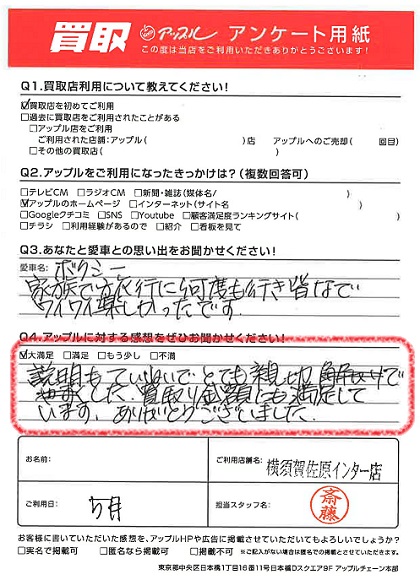 買取 アップル アンケート用紙
この度は当店をご利用いただきありがとうございます!
Q1.買取店利用について教えてください!
☑買取店を初めてご利用
□過去に買取店をご利用されたことがある
□アップル店をご利用
ご利用された店舗:アップル( )店 アップルへのご売却( 回目)
□その他の買取店( )
Q2.アップルをご利用になったきっかけは?(複数回答可)
□テレビCM □ラジオCM □新聞・雑誌(媒体名/ )
☑アップルのホームページ □インターネット(サイト名 )
□Googleクチコミ □SNS □Youtube □顧客満足度ランキングサイト( )
□チラシ □利用経験があるので □紹介 □看板を見て
Q3.あなたと愛車との思い出をお聞かせください!
愛車名:ボクシー
家族で旅行に何度も行き皆なで
ワイワイ楽しかったです。
Q4.アップルに対する感想をぜひお聞かせください!
☑大満足 □満足 □もう少し □不満
説明もていねいでとても親切
買取り金額にも満足して
います。ありがとうございました。
お名前:
ご利用店舗名:
横須賀佐原インター店
ご利用日: 5月
担当スタッフ名: 斎藤
お客様に書いていただいた感想を、アップルHPや広告に掲載させていただいてもよろしいでしょうか?
□実名で掲載可 □匿名なら掲載可 □掲載不可 ※ご記入がない場合は匿名での掲載とさせていただきます。
東京都中央区日本橋1丁目16番11号日本橋Dスクエア9F アップルチェーン本部